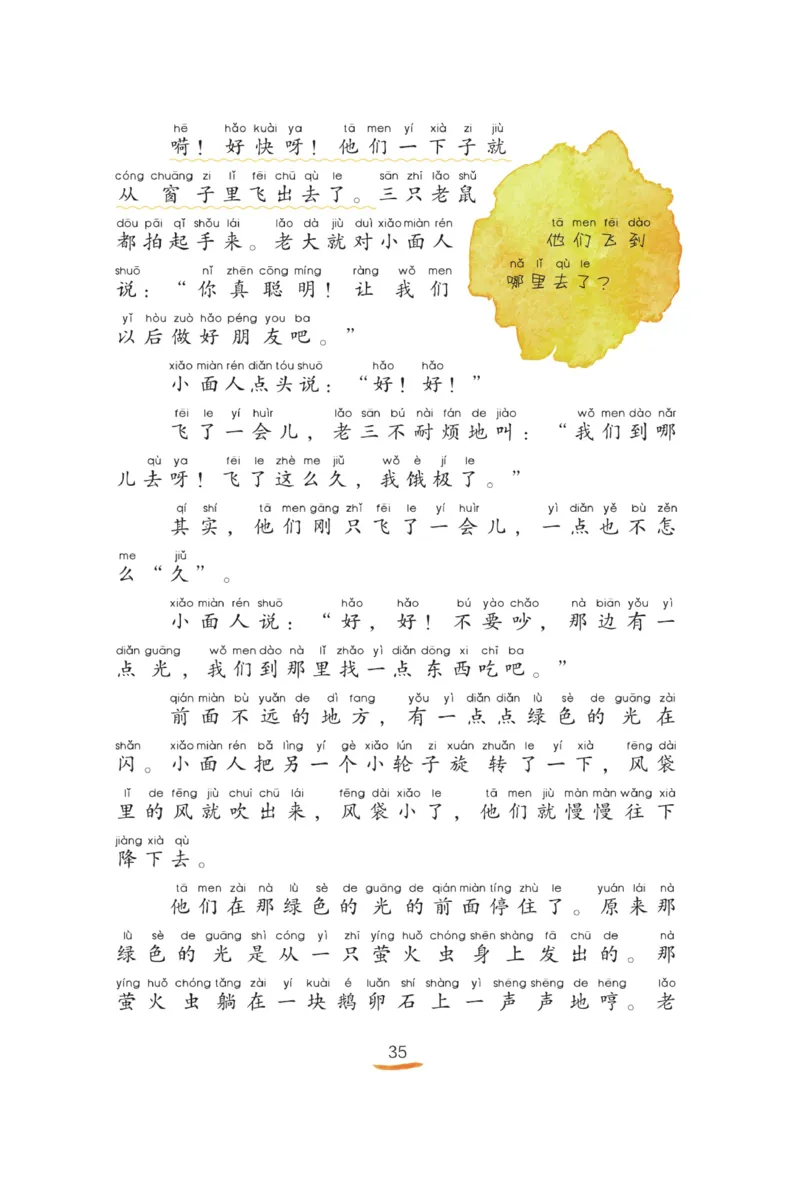 hē hǎo kuài ya tā men yí xià zi jiù
嗬！好快呀！他们一下子就
cóng chuāng zi lǐ fēi chū qù le sān zhī lǎo shǔ
从窗子里飞出去了。三只老鼠
dōu pāi qǐ shǒu lái lǎo dà jiù duì xiǎo miàn rén
都拍起手来。老大就对小面人
shuō nǐ zhēn cōng míng ràng wǒ men
说：“你真聪明！让我们
yǐ hòu zuò hǎo péng you ba
以后做好朋友吧。”
tā men fēi dào
他们飞到
nǎ lǐ qù le
哪里去了？
xiǎo miàn rén diǎn tóu shuō hǎo hǎo
小面人点头说：“好！好！”
fēi le yí huìr lǎo sān bú nài fán de jiào wǒ men dào nǎr
飞了一会儿，老三不耐烦地叫：“我们到哪
qù ya fēi le zhè me jiǔ wǒ è jí le
儿去呀！飞了这么久，我饿极了。”
qí shí tā men gāng zhǐ fēi le yí huìr yì diǎn yě bù zěn
其实，他们刚只飞了一会儿，一点也不怎
me jiǔ
么“久”。
xiǎo miàn rén shuō hǎo hǎo bú yào chǎo nà biān yǒu yì
小面人说：“好，好！不要吵，那边有一
diǎn guāng wǒ men dào nà lǐ zhǎo yì diǎn dōng xi chī ba
点光，我们到那里找一点东西吃吧。”
qián miàn bù yuǎn de dì fang yǒu yì diǎn diǎn lǜ sè de guāng zài
前面不远的地方，有一点点绿色的光在
shǎn xiǎo miàn rén bǎ lìng yí gè xiǎo lún zi xuán zhuǎn le yí xià fēng dài
闪。小面人把另一个小轮子旋转了一下，风袋
lǐ de fēng jiù chuī chū lái fēng dài xiǎo le tā men jiù màn màn wǎng xià
里的风就吹出来，风袋小了，他们就慢慢往下
jiàng xià qù
降下去。
tā men zài nà lǜ sè de guāng de qián miàn tíng zhù le yuán lái nà
他们在那绿色的光的前面停住了。原来那
lǜ sè de guāng shì cóng yì zhī yíng huǒ chóng shēn shàng fā chū de nà
绿色的光是从一只萤火虫身上发出的。那
yíng huǒ chóng tǎng zài yí kuài é luǎn shí shàng yì shēng shēng de hēng lǎo
萤火虫躺在一块鹅卵石上一声声地哼。老
35